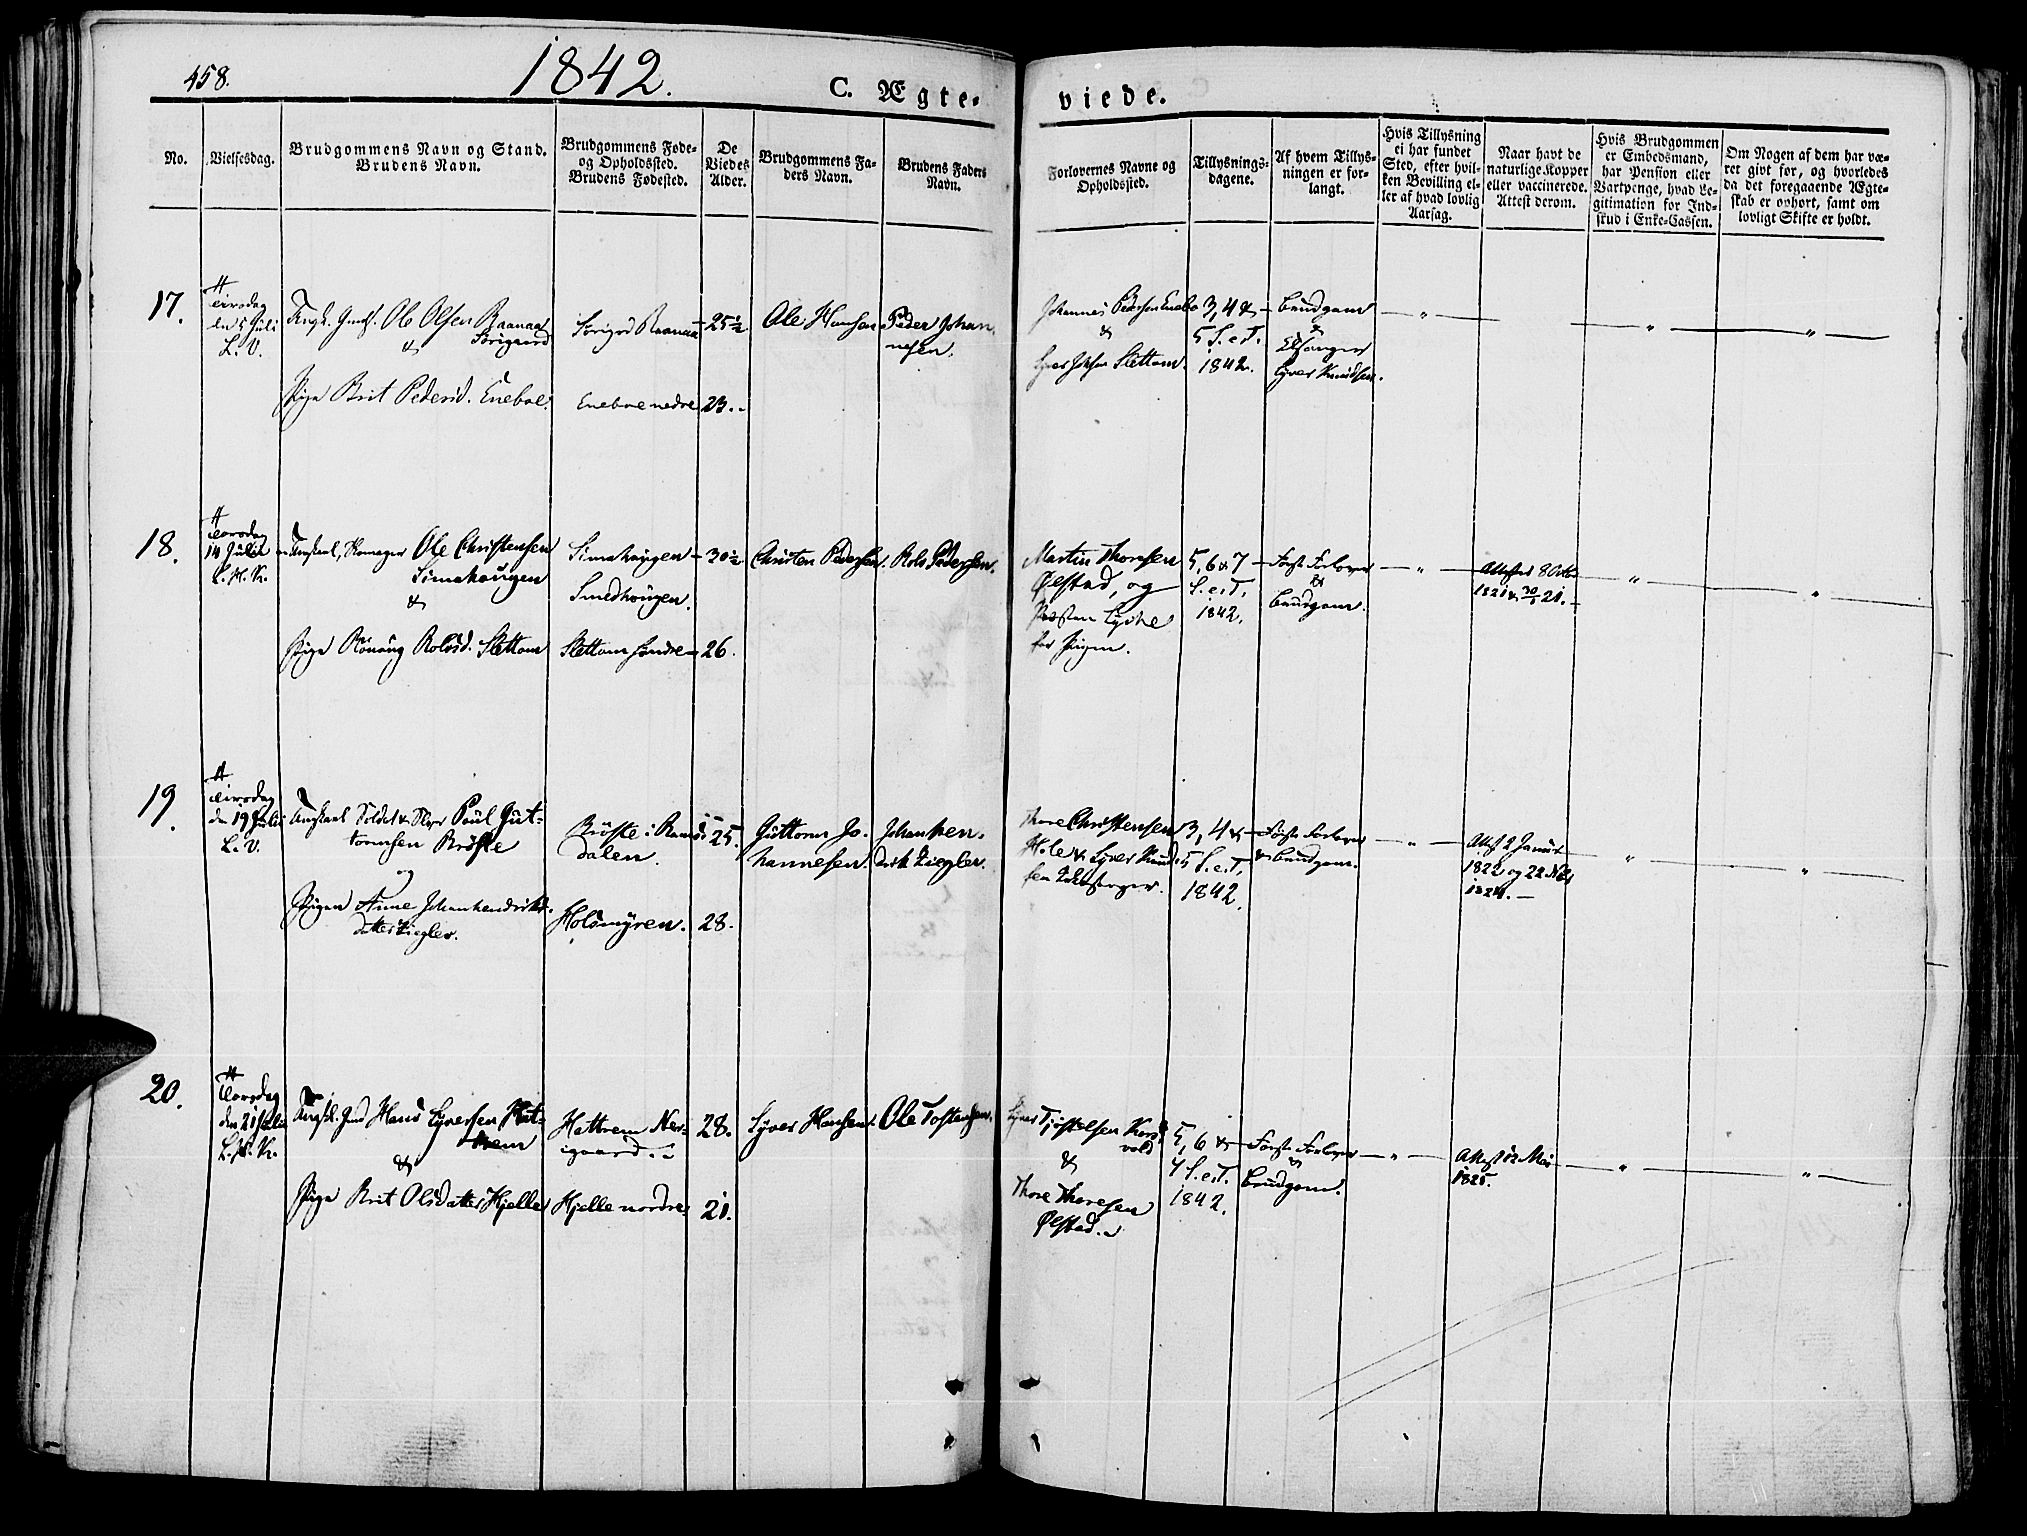 458.
1842.
C. Ægte-
viede.
No.
Vielsesdag.
Brudgommens Navn og Stand.
Brudens Navn.
Brudgommens Føde-
og Opholdssted.
Brudens Fødested.
De
Viedes
Alder.
Brudgommens Fa-
ders Navn.
Brudens Faders
Navn.
Forlovernes Navne og
Opholdssted.
Tillysnings-
dagene.
Af hvem Tillys-
ningen er for-
langt.
Hvis Tillysning
ei har fundet
Sted, efter hvil-
ken Bevilling el-
ler af hvad lovlig
Aarsag.
Naar havt de
naturlige Kopper
eller vaccinerede.
Attest derom.
Hvis Brudgommen
er Embedsmand,
har Pension eller
Vartpenge, hvad Le-
gitimation for Ind-
skud i Enke-Cassen.
Om Nogen af dem har væ-
ret givt før, og hvorledes
da det foregaaende Ægte-
skab er ophørt, samt om
lovligt Skifte er holdt.
17.
Tirsdag
den 5 Juli
L. V.
Ungk. Gmd. Ole Olsen Raanaa
Sørigaard
&
Pige Brit Pedersd. Eneboe.
Sørigrd Raanaa
Eneboe nedre
25½
23.
Ole Hansen
Peder Johan
nesen.
Johannes Pedersen Eneboe
&
Syver Slettom.
3, 4 &
5 S. e. T.
1842.
Brudgom
&
Klokker
Syver Knudsen.
18.
Torsdag
14 Julii
L. H. K.
Ungkarl, Skomager Ole Christensen
Simahougen
&
Pige Rönaug Rolvsd. Slettom
Simahougen
Smedhougen.
Slettom søndre
30½
26.
Christen Pedersen.
Rolv Pedersen.
Martin Thoresen
Øestad, og
Præsten Lyche
for Pigen.
5, 6 & 7
S. e. T.
1842.
Første Forlover
&
Brudgom.
Attester 8 Octbr
1821 & 30/5 21.
19.
Tirsdag
den 19 Julii
L. V.
Ungkarl Soldat & Paul Gut-
tormsen Brøste
og
Pigen Anne Johanhendriks-
datter Ziegler.
Brøste i Roms-
dalen.
Holsmyren.
25.
28.
Guttorm Jo-
hannesen.
Johan hen-
drik Ziegler.
Thore Christensen
Hole & Syver Knud-
sen Kirkesanger.
3, 4 &
5 S. e. T.
1842.
Første Forlover
& Brudgom.
Attest 2 Januar
1822 og 22 Nov
1824.
20.
Torsdag
den 21 Julii
L. H. K.
Ungk. Gmd Hans Syversen Hat-
trem
&
Pige Brit Olsdatter Hjelle
Hattrem Ner-
igaard.
Hjelle nordre
28.
21.
Syver Hansen.
Ole Tostensen.
Syver Tjøstolsen Kors-
vold
&
Thore Thoresen
Øestad.
5, 6 &
7 S. e. T.
1842.
Første Forlover
&
Brudgom.
Attest 12 Mai
1825.